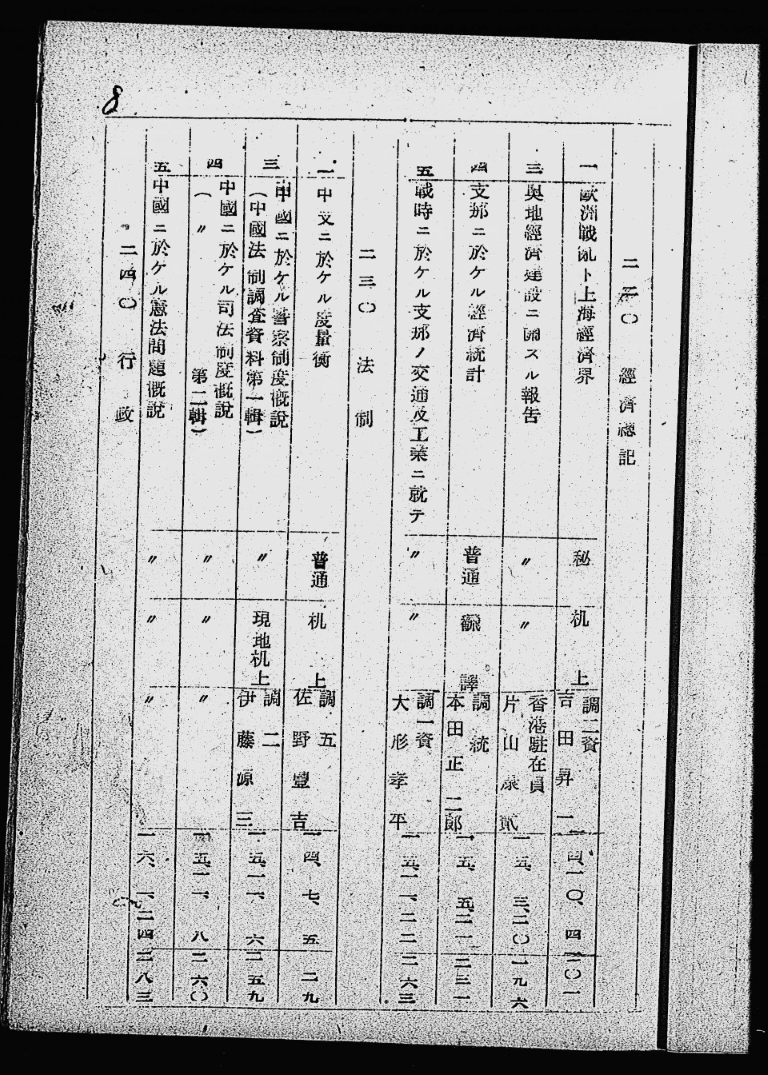 8
二二〇 經濟總記
一 歐洲戰亂ト上海經濟界 秘 机上 調二資 吉田昇一 一四、一〇、四 二〇一
三 奧地經濟建設ニ關スル報告 〃 〃 香港駐在員 片山康貳 一五、三、二〇 一九六
四 支那ニ於ケル經濟統計 普通 飜譯 調統 本田正二郎 一五、五、二一 二三一
五 戰時ニ於ケル支那ノ交通及工業ニ就テ 〃 〃 調一資 大形孝平 一五、一一、二二 二六三
二三〇 法制
一 中支ニ於ケル度量衡 普通 机上 調五 佐野豐吉 一四、七、五 二九
三 中國ニ於ケル警察制度槪說
(中國法制調査資料第一輯) 〃 現地机上 調二 伊藤源三 一五、一一、六 二五九
四 中國ニ於ケル司法制度槪說
( 〃 第二輯) 〃 〃 〃 一五、一一、八 二六〇
五 中國ニ於ケル憲法問題槪說 〃 〃 〃 一六、一、二四 二八三
二四〇 行政